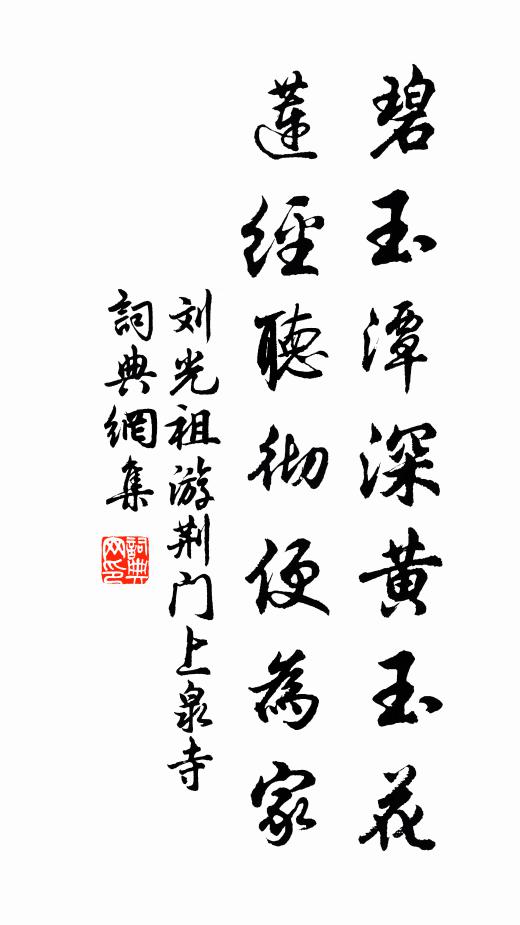 碧玉潭深黄玉花
蓮經聽彻便為家
刘光祖游荆门上泉寺
詞典網集
詞典网印